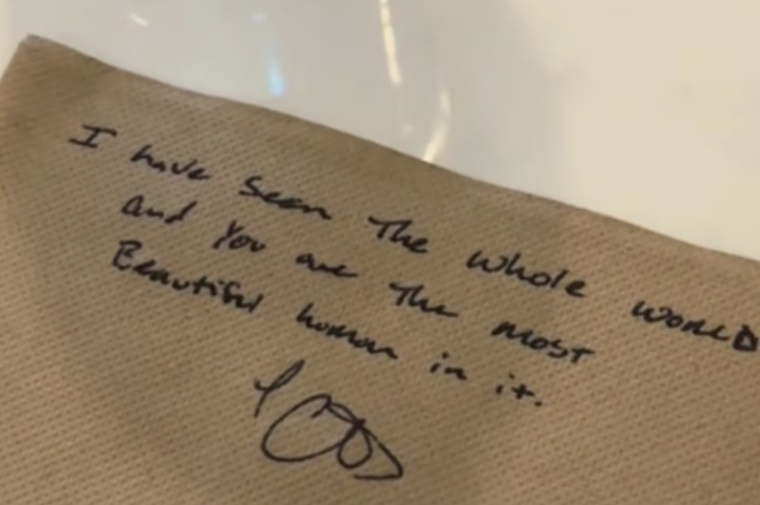 I have seen the whole WORLD
and You are the most
Beautiful human in it.